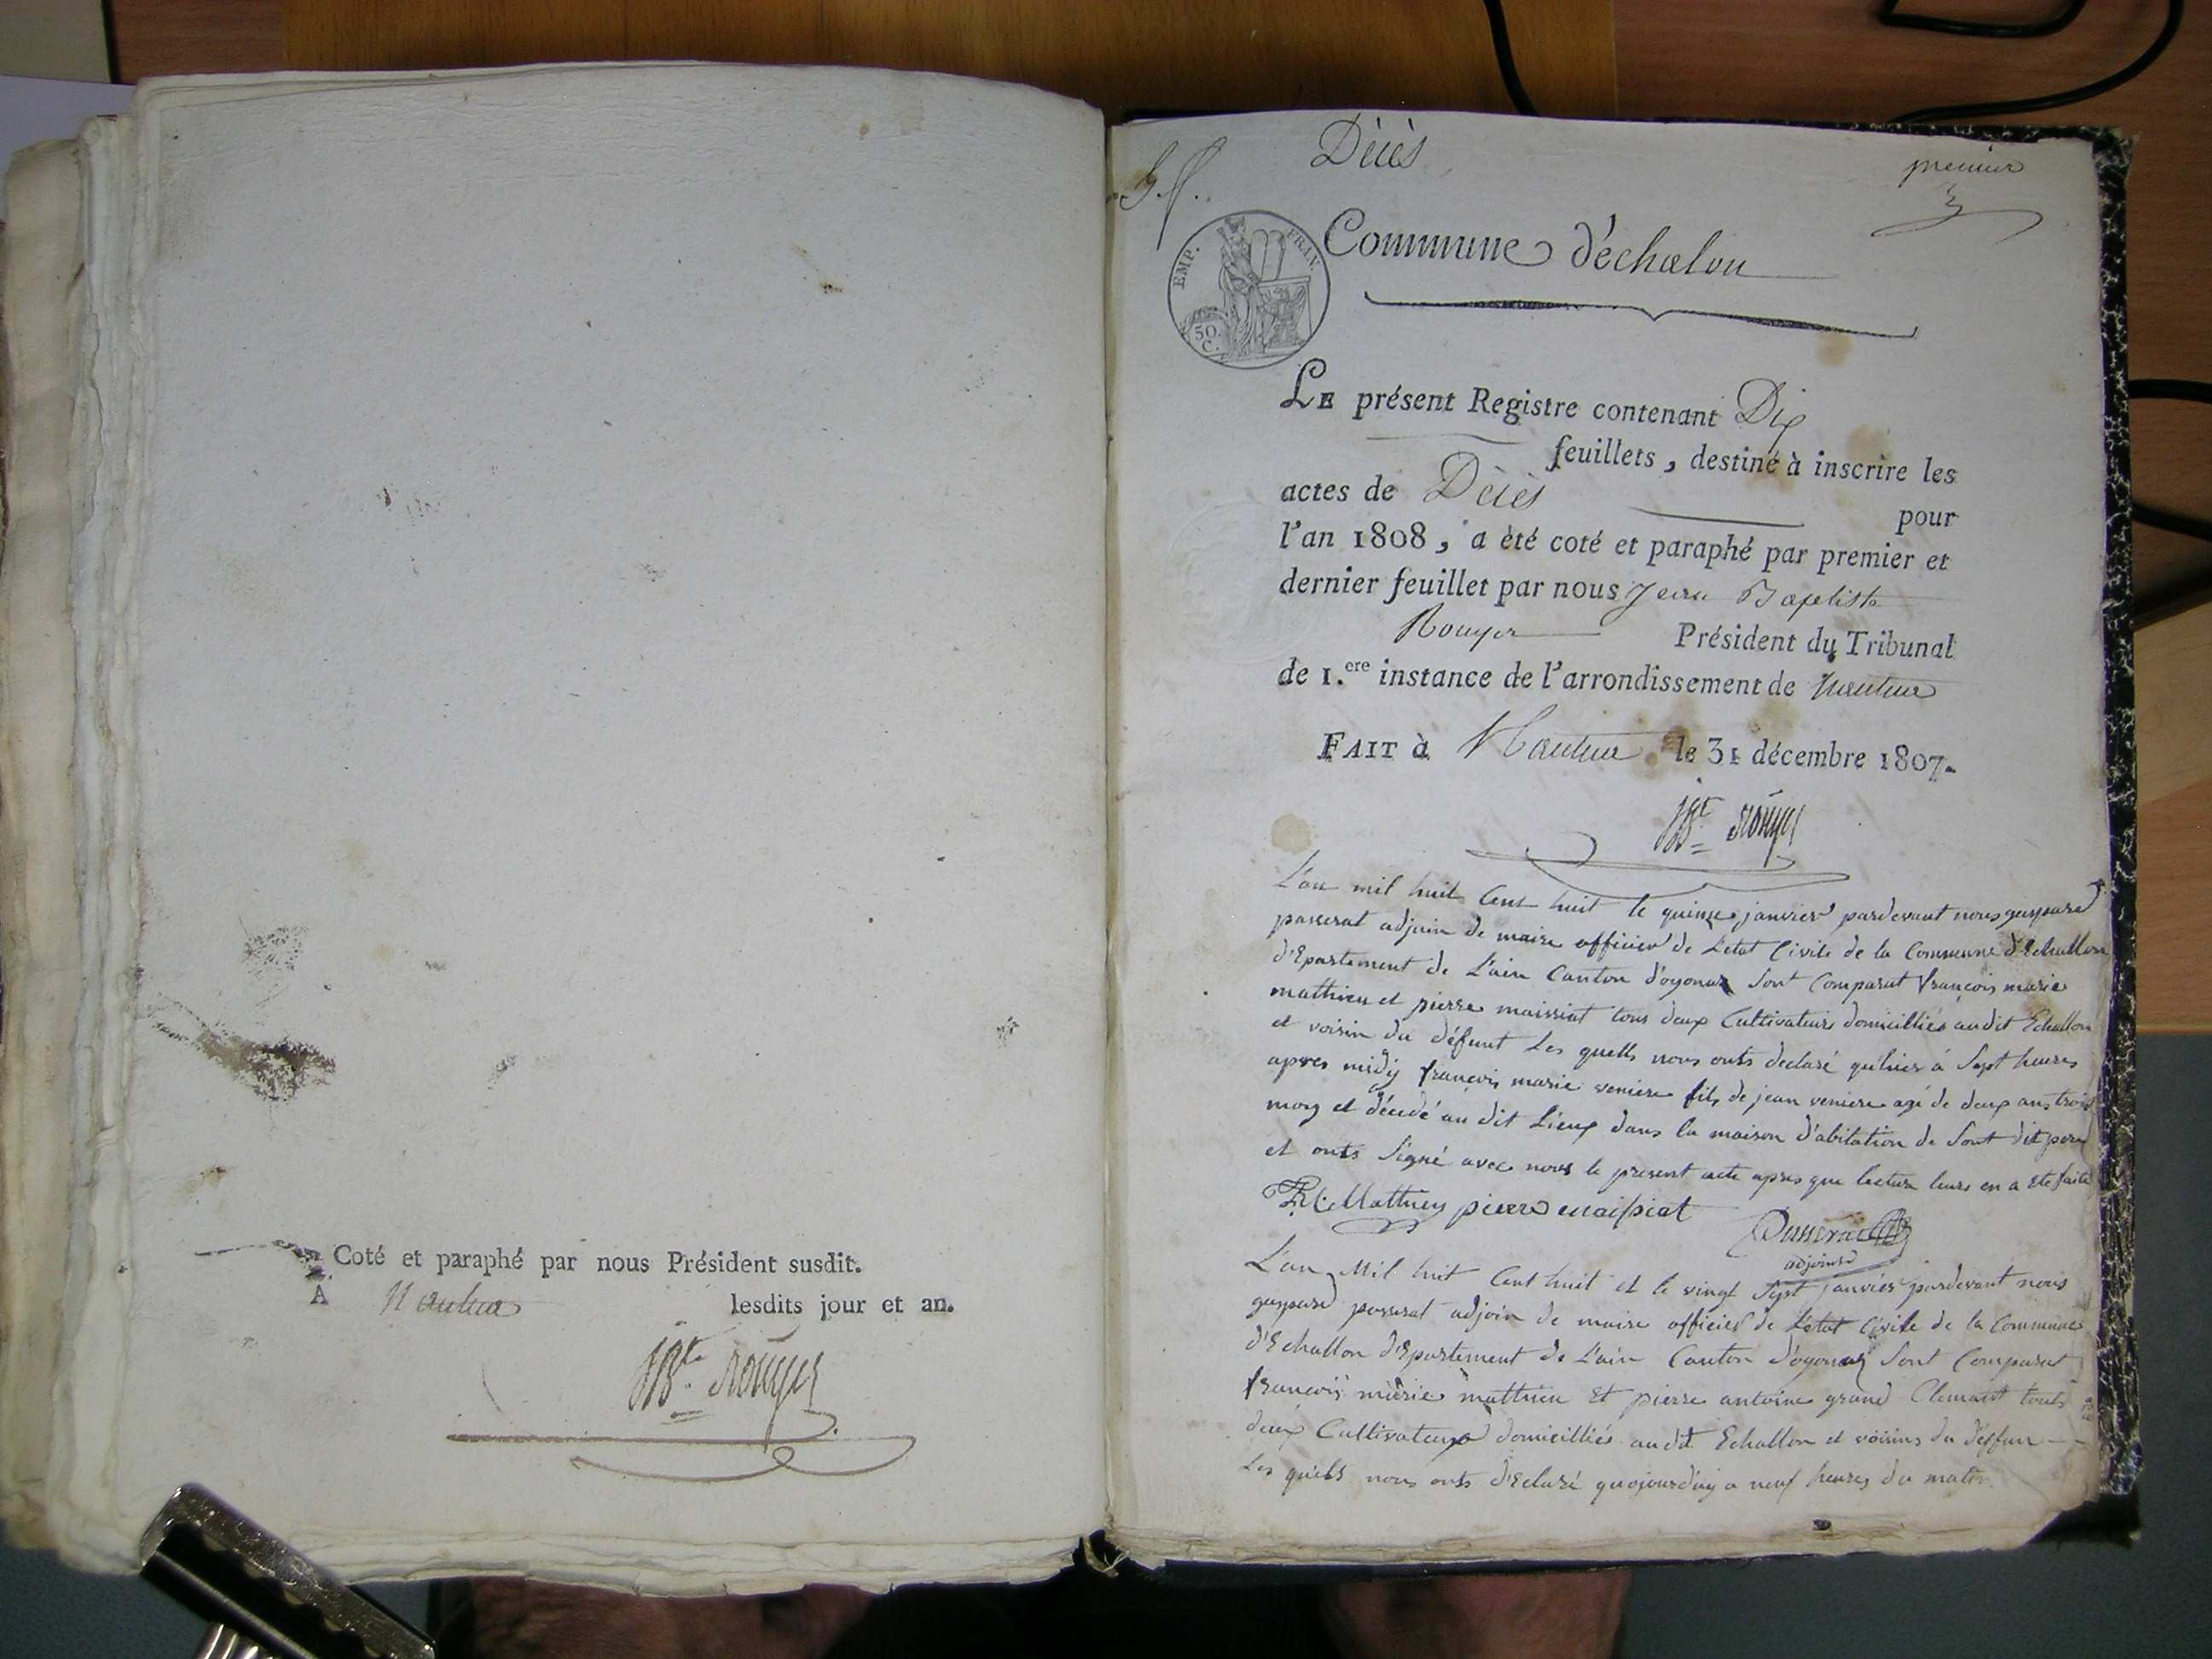 Coté et paraphé par nous Président susdit.
A Nantua lesdits jour et an.
JBte Rouyer
Décès
premier
EMP. FRAN.
50. C.
Commune d'échalon
LE présent Registre contenant Dix
feuillets, destiné à inscrire les
actes de Décès pour
l'an 1808, a été coté et paraphé par premier et
dernier feuillet par nous Jean Baptiste
Rouyer Président du Tribunal
de 1.ere instance de l'arrondissement de Nantua
FAIT à Nantua le 31 décembre 1807.
JBte Rouyer
L'an mil huit Cent huit le quinze janvier pardevant nous gaspard
passerat adjoin de maire officier de Letat Civile de la Commune d'Echallon
d'Epartement de L'ain Canton d'oyonax Sont Comparut françois marie
mathieu et pierre maissiat tous deux Cultivateurs domicilliés audit Echallon
et voisin du défunt Les quells nous onts declaré qu'hier à Sept heures
apres midÿ françois marie veniere fils de jean veniere agé de deux ans trois
moy et décedé au dit Lieux dans la maison d'abitation de Sont dit pere
et onts Signé avec nous le present acte apres que lecture leurs en a ete faite
F.M. Mathieu pierre maissiat
Passerat
adjoint
L'an Mil huit Cent huit et le vingt Sept janvier pardevant nous
gaspard passerat adjoin de maire officier de Létat Civile de la Commune
d'Echallon d'Epartement de L'ain Canton d'oyonax Sont Comparut
françois marie matthieu Et pierre antoine grand Clemant touts
deux Cultivateurs domicilliés audit Echallon et voisins du déffun
Les quels nous onts d'Eclaré quojourduÿ a neuf heures du matin